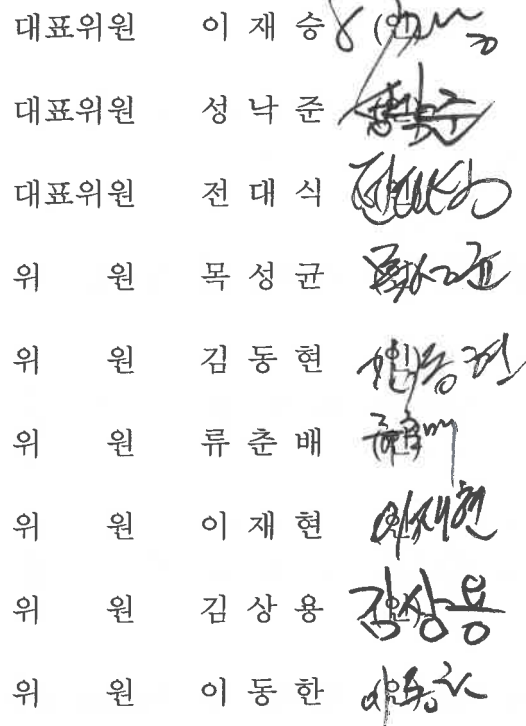 대표위원 이 재 승 (인)
대표위원 성 낙 준
대표위원 전 대 식
위 원 목 성 균
위 원 김 동 현 (인)
위 원 류 춘 배
위 원 이 재 현
위 원 김 상 용 김상용
위 원 이 동 한